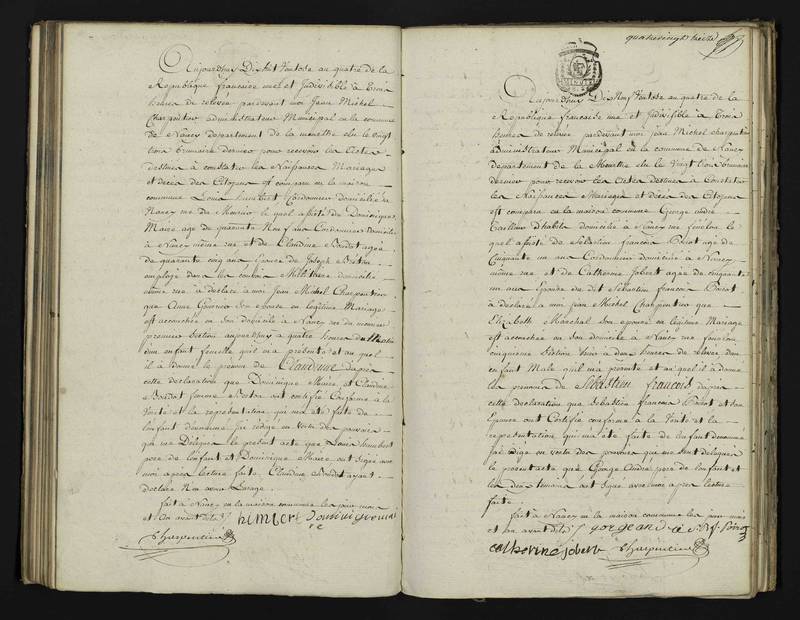 Aujourdhuy Dix huit Ventose an quatre de la
République française une et Indivisible à Trois
heures de relevée pardevant moi Jean Michel
Charpentier administrateur Municipal en la commune
de Nancy département de la meurthe élu le vingt
trois brumaire dernier pour recevoir les actes
destinés à constater les Naissances Mariages
et décès des Citoyens est comparu en la maison
commune Louis humbert Cordonnier domicilié à
Nancy rue du le quel assisté de Dominique
Maire agé de quarante Neuf ans Cordonnier Domicilié
à Nancy même rue et de Claudine Bordot agée
de quarante cinq ans Epouse de Joseph
employé dans les Militaires domicilié
même rue à déclaré à moi Jean Michel Charpentier
que Anne son épouse en légitime Mariage
est accouchée en son domicile à Nancy rue du
premier Section aujourdhuy à quatre heures du Matin
dun enfant femelle quil m'a présenté et au quel
il à donné le prenom de Claudine dapres
cette déclaration que Dominique Maire et Claudine
Bordot femme ont certifié Conforme à la
Vérité et la représentation qui m'a été faite de
lenfant denommé jai rédigé en vertu des pouvoirs
qui me sont Délégués le présent acte que Louis humbert
pere de lenfant et Dominique Maire ont signé avec
moi apres lecture faite, Claudine Bordot ayant
déclaré N'en avoir Lusage.
fait à Nancy en la maison commune les jour mois
et an avant dits /. humbert Dominique maire
Charpentier
quatrevingt treize
Aujourdhuy Dix Neuf Ventose an quatre de la
République française une et Indivisible à Trois
heures de relevée pardevant moi jean Michel charpentier
administrateur Municipal en la commune de Nancy
département de la Meurthe élu le Vingt trois brumaire
dernier pour recevoir les actes destinés à Constater
les Naissances Mariages et décès des Citoyens
est comparu en la maison commune George André
Tailleur dhabits domicilié à Nancy rue fénélon le
quel assisté de Sébastien françois Poirot agé de
Cinquante un ans Cordonnier domicilié à Nancy
même rue et de Catherine Jobert agée de cinquante
un ans Epouse du dit Sébastien françois Poirot
à déclaré à moi Jean Michel Charpentier que
Elizabeth Marchal son épouse en légitime Mariage
est accouchée en son domicile à Nancy rue fénélon
cinquieme Section hier à deux heures de relevée dun
enfant Male quil m'a présenté et au quel il à donné
les prenoms de Sébastien françois dapres
cette déclaration que Sébastien françois Poirot et son
Epouse ont Certifié conforme à la Vérité et la
représentation qui m'a été faite de lenfant denommé
jai rédigé en vertu des pouvoirs qui me sont délégués
le présent acte que George André pere de lenfant et
les deux témoins ont signé avec moi apres lecture
faite.
fait à Nancy en la maison commune les jour mois
et an avant dits /. gorge andré S. f. Poirot
catherine jobert Charpentier